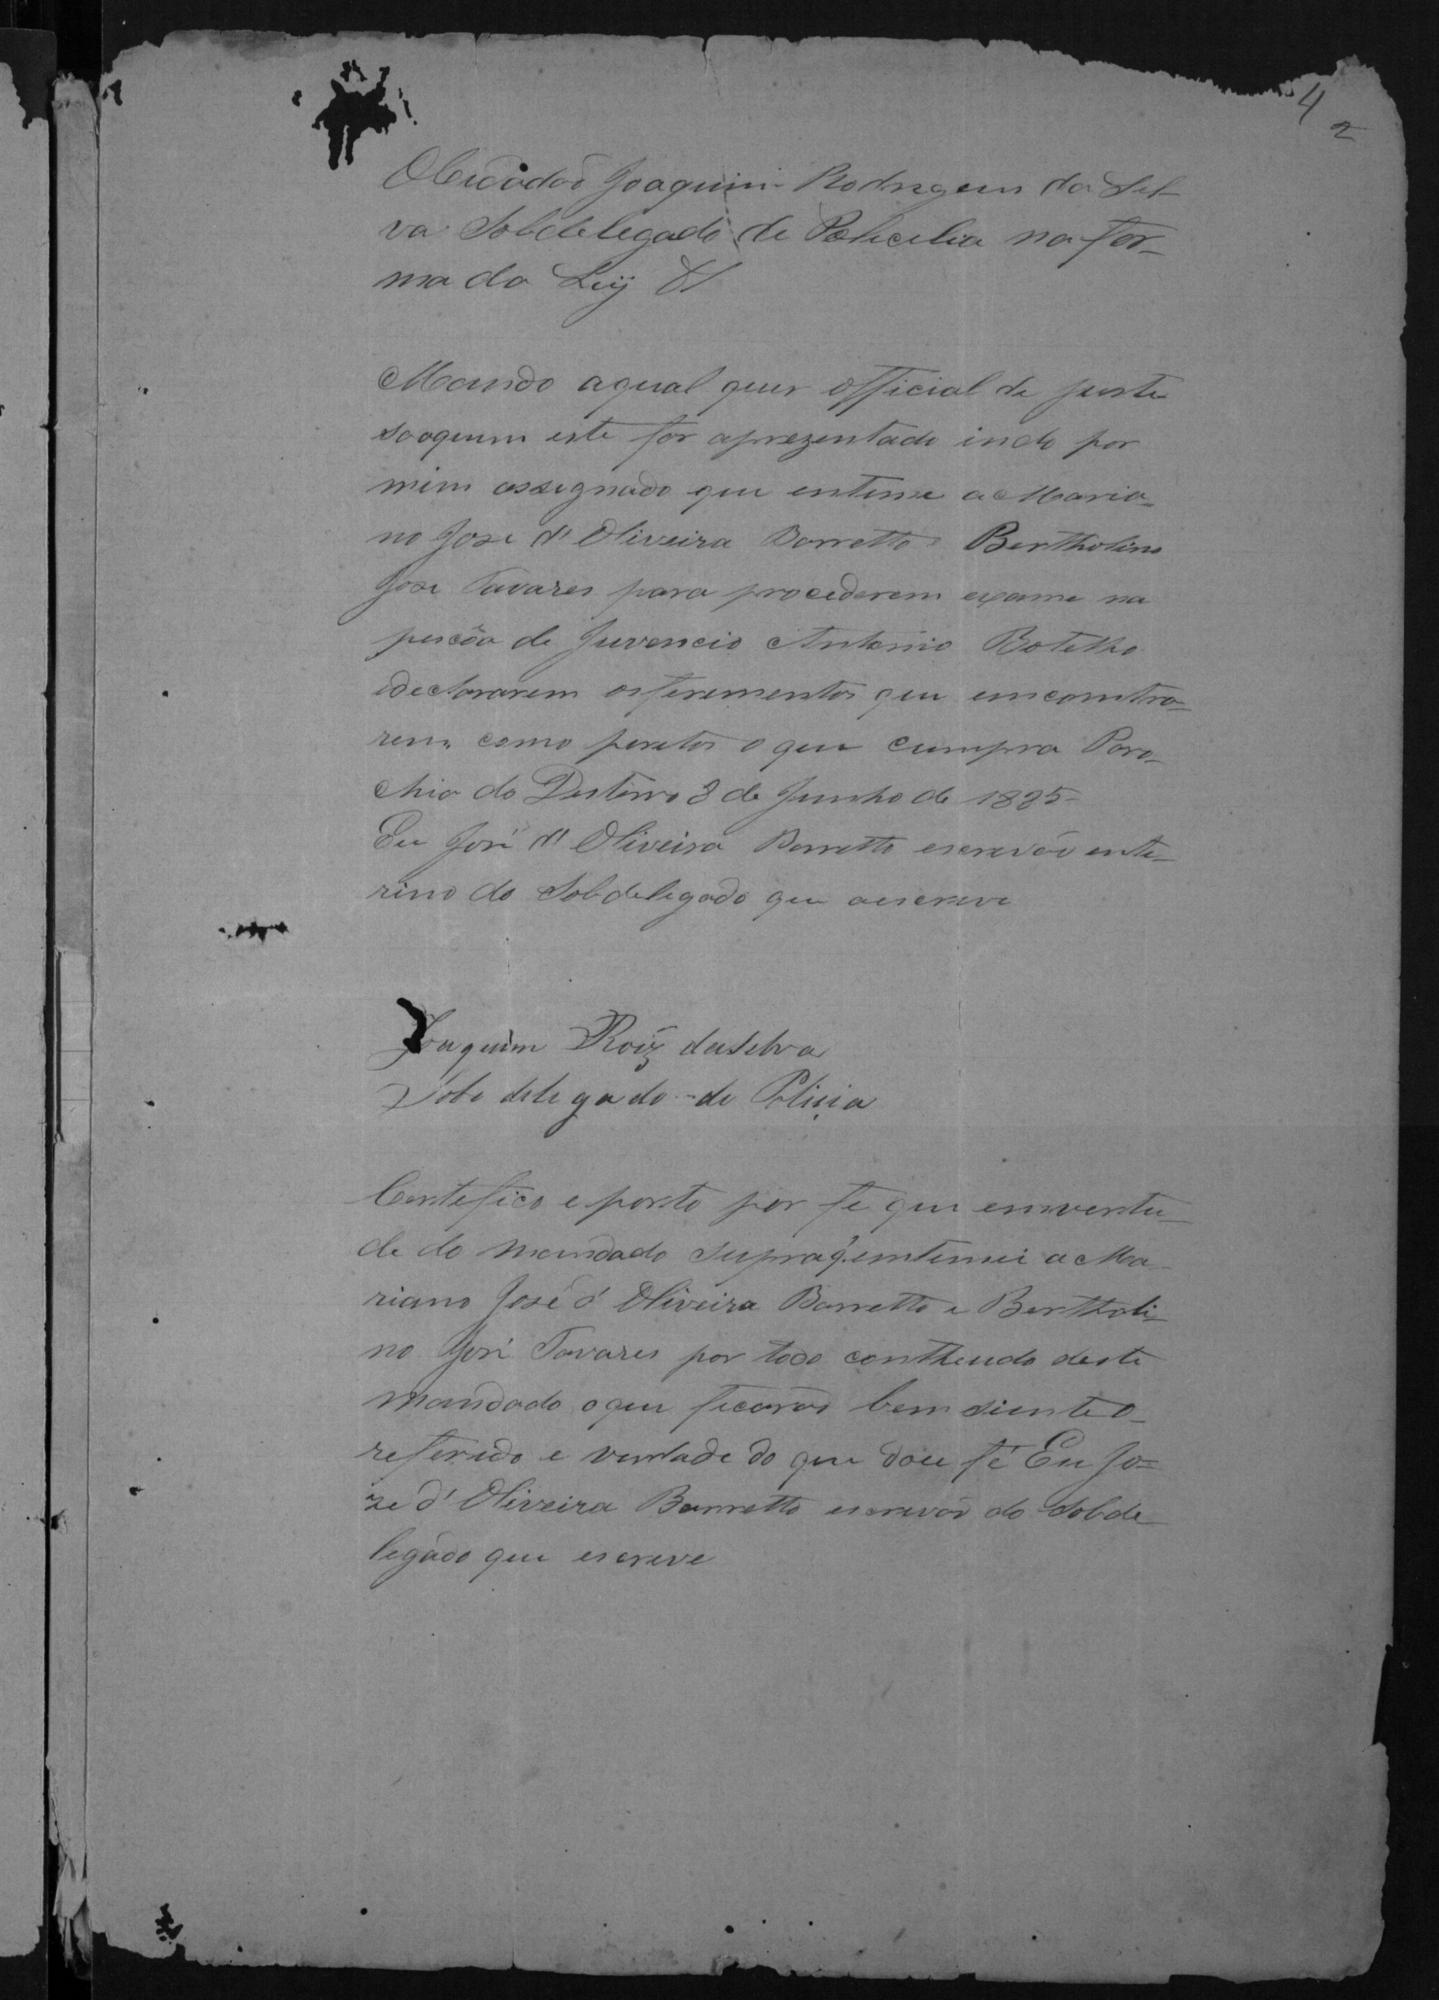 4
2
O Cidadão Joaquim Rodrigeus da Sil-
va Sobdelegado de Policelia na for-
ma da Leij &
Mando aqual quer official de juste
saaquem este for aprezentado indo por
mim assignado que enteme a Maria-
no Joze d' Oliveira Barretto Bertholino
Joze Tavares para procederem exame na
pesoõa de Juvencio Antonio Botelho
edeclararem osferementos que emcomtra-
rem como peretos o que cumpra Paro-
chia do Desterro 3 de Junho de 1885
Eu José d' Oliveira Barretto escrevão ente-
rino do Sobdelegado que aescreve
Joaquim Roiz da Selva
Sobe delegado de Policia
Certefico e porto por fe que emvertu-
de do mandado supra q' entemei a Ma-
riano José d' Oliveira Barretto e Bertholi-
no José Tavares por todo contheudo deste
mandado oque ficarão bem siente O
referido e verdade do que dou fé Eu Jo-
ze d' Oliveira Barretto escrevão do Sobde
legado que escreve